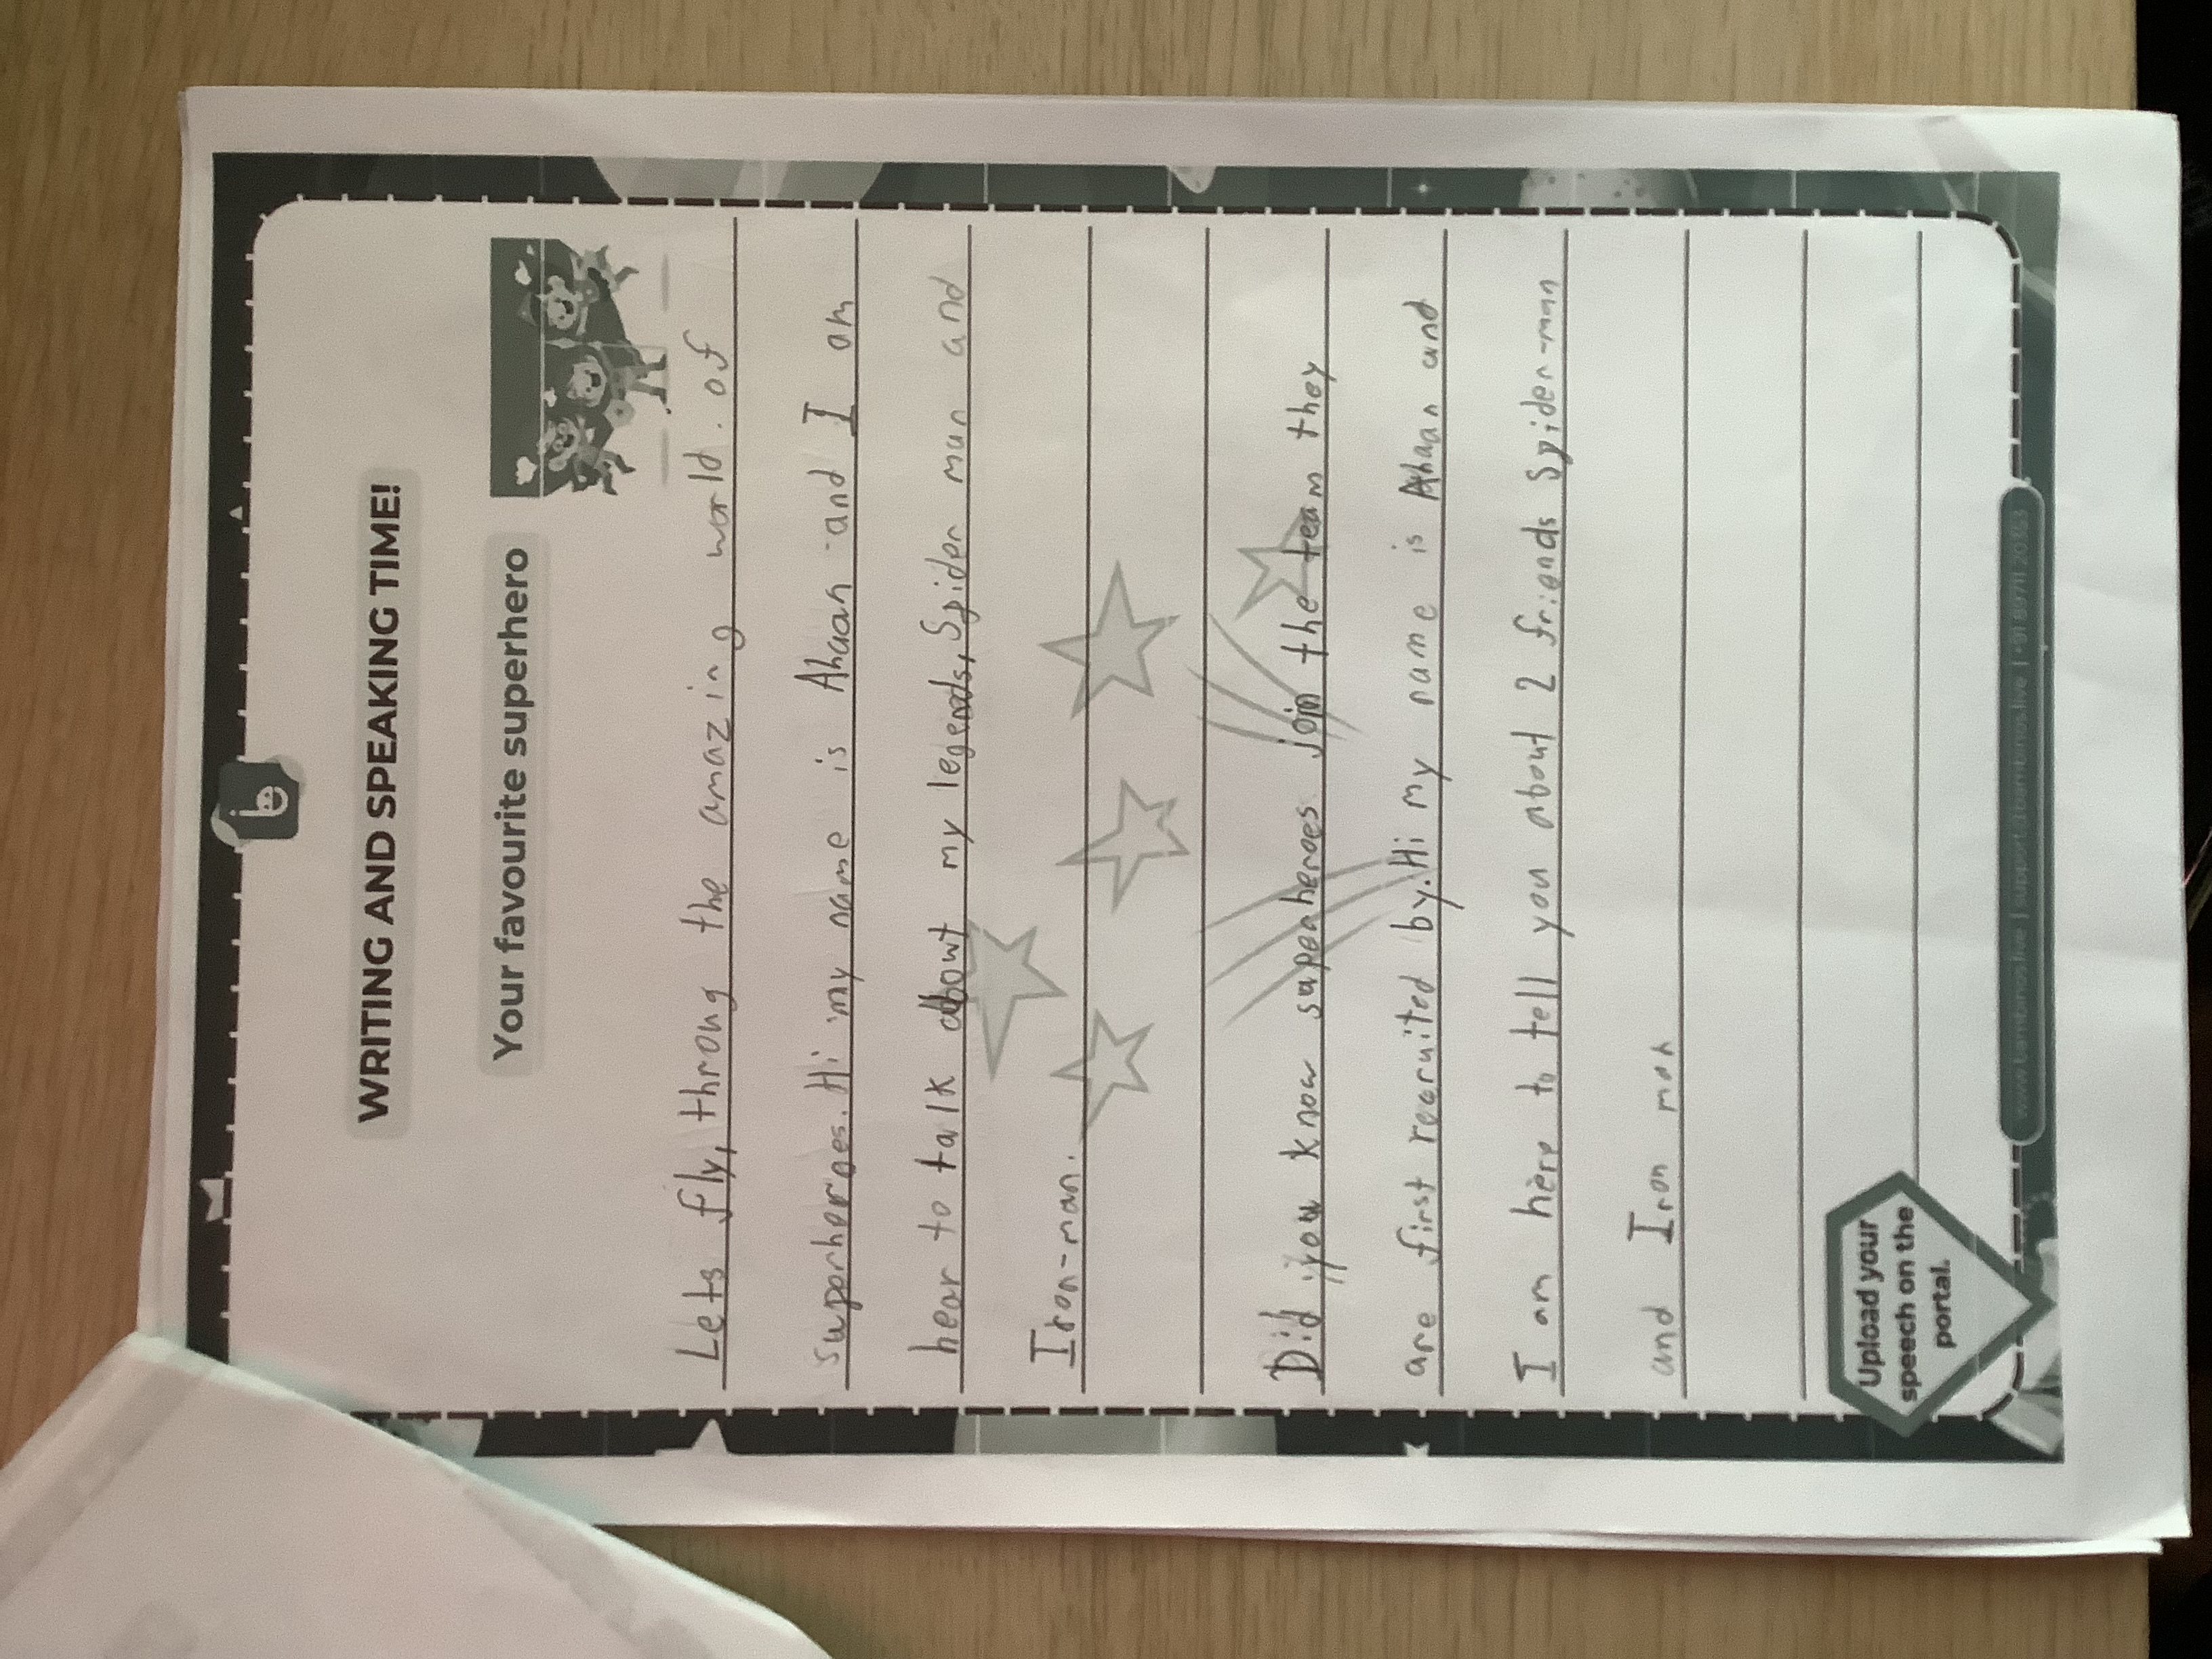 WRITING AND SPEAKING TIME!
Your favourite superhero
Lets fly, throug the amazing world. of
superheroes. Hi my name is Ahaan and I am
hear to talk about my legends, Spider man and
Iron-man.
Did you know superheroes join the team they
are first recruited by. Hi my name is Ahaan and
I am here to tell you about 2 friends Spider-man
and Iron man
Upload your
speech on the
portal.